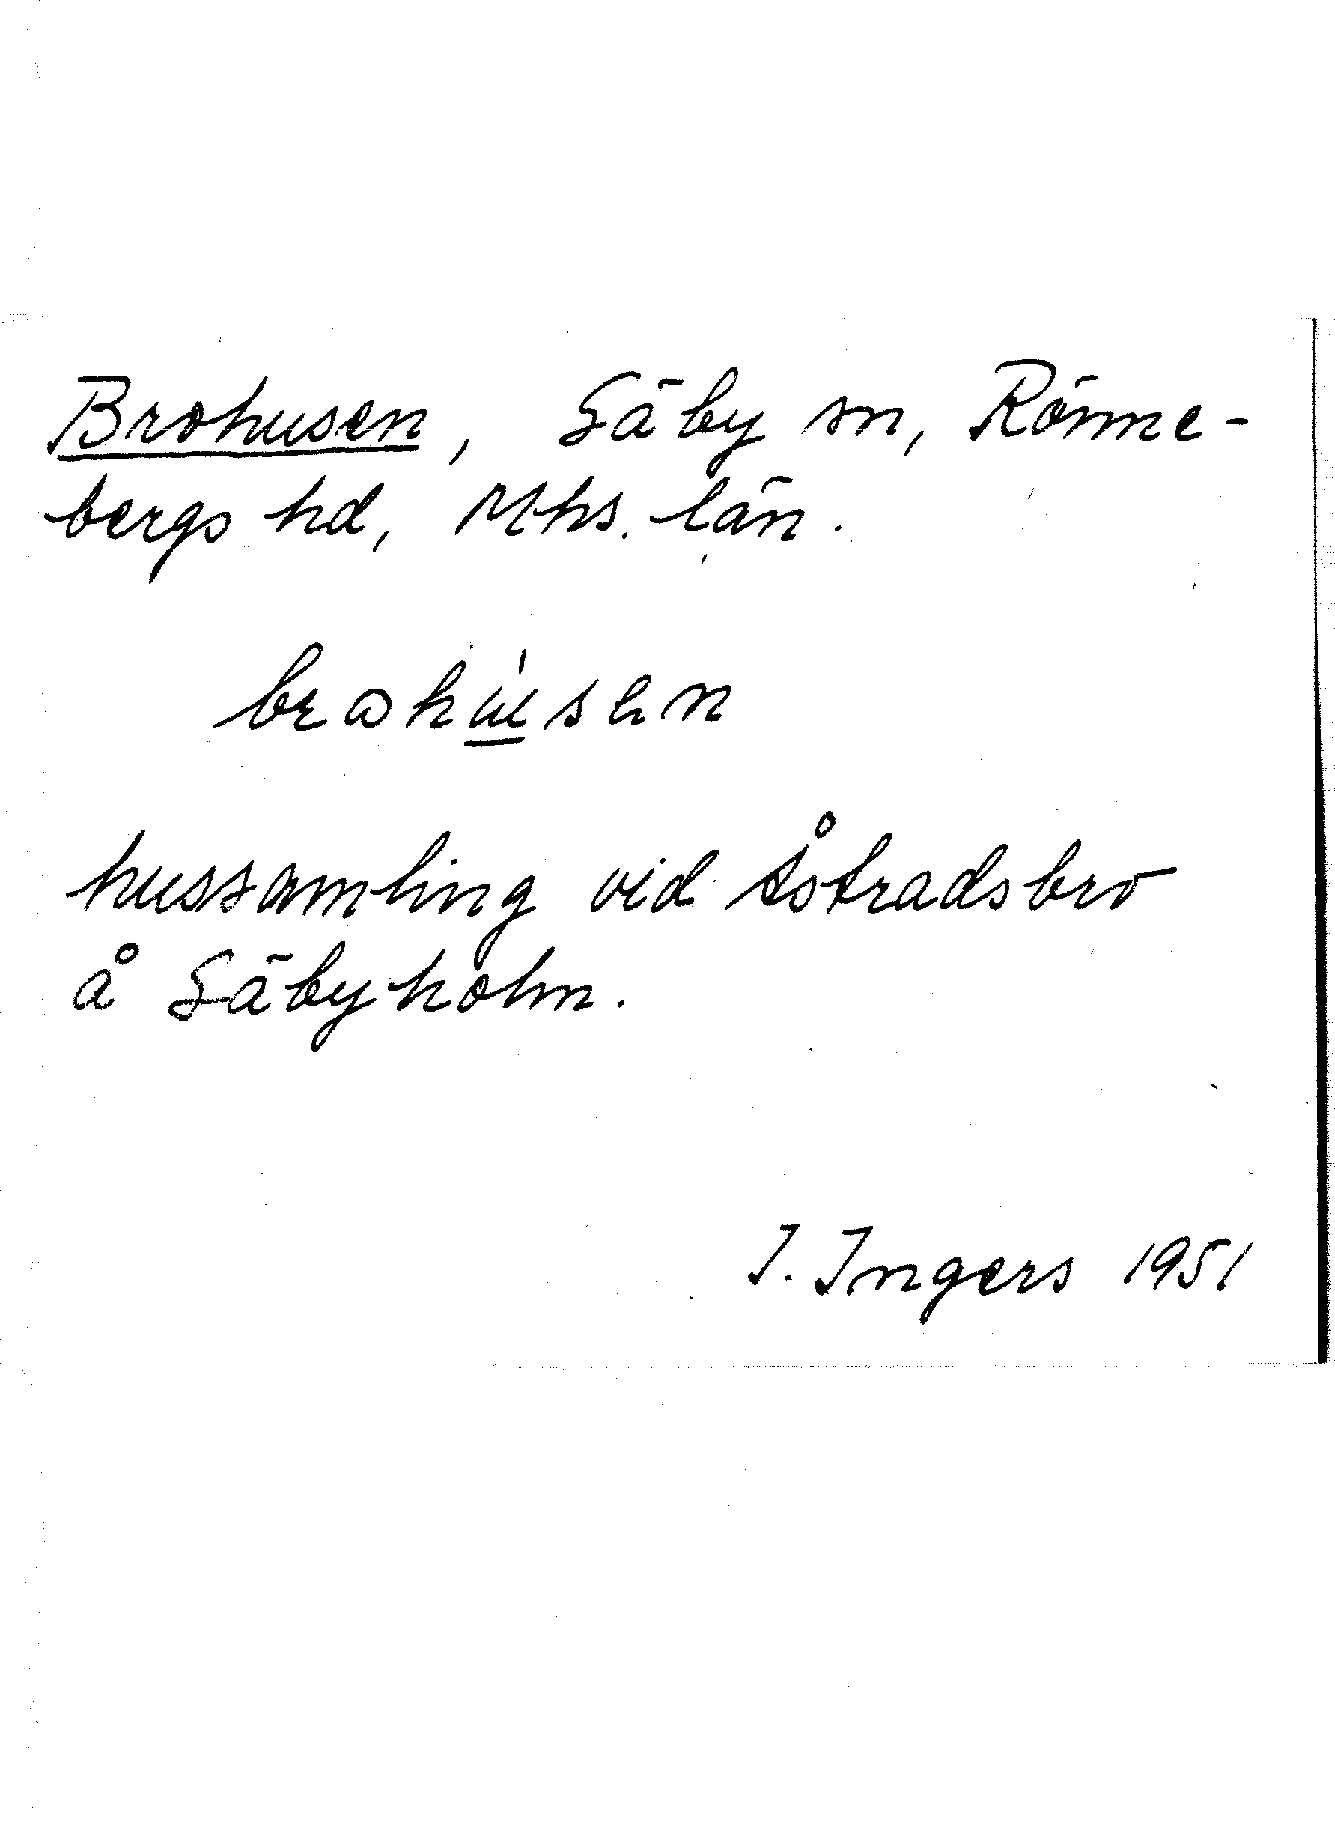 Brohusen, Säby sn, Rönne-
bergs hd, Mhs. län.
brohúsen
hussamling vid Åstradsbro
å Säbyholm.
I. Ingers 1951